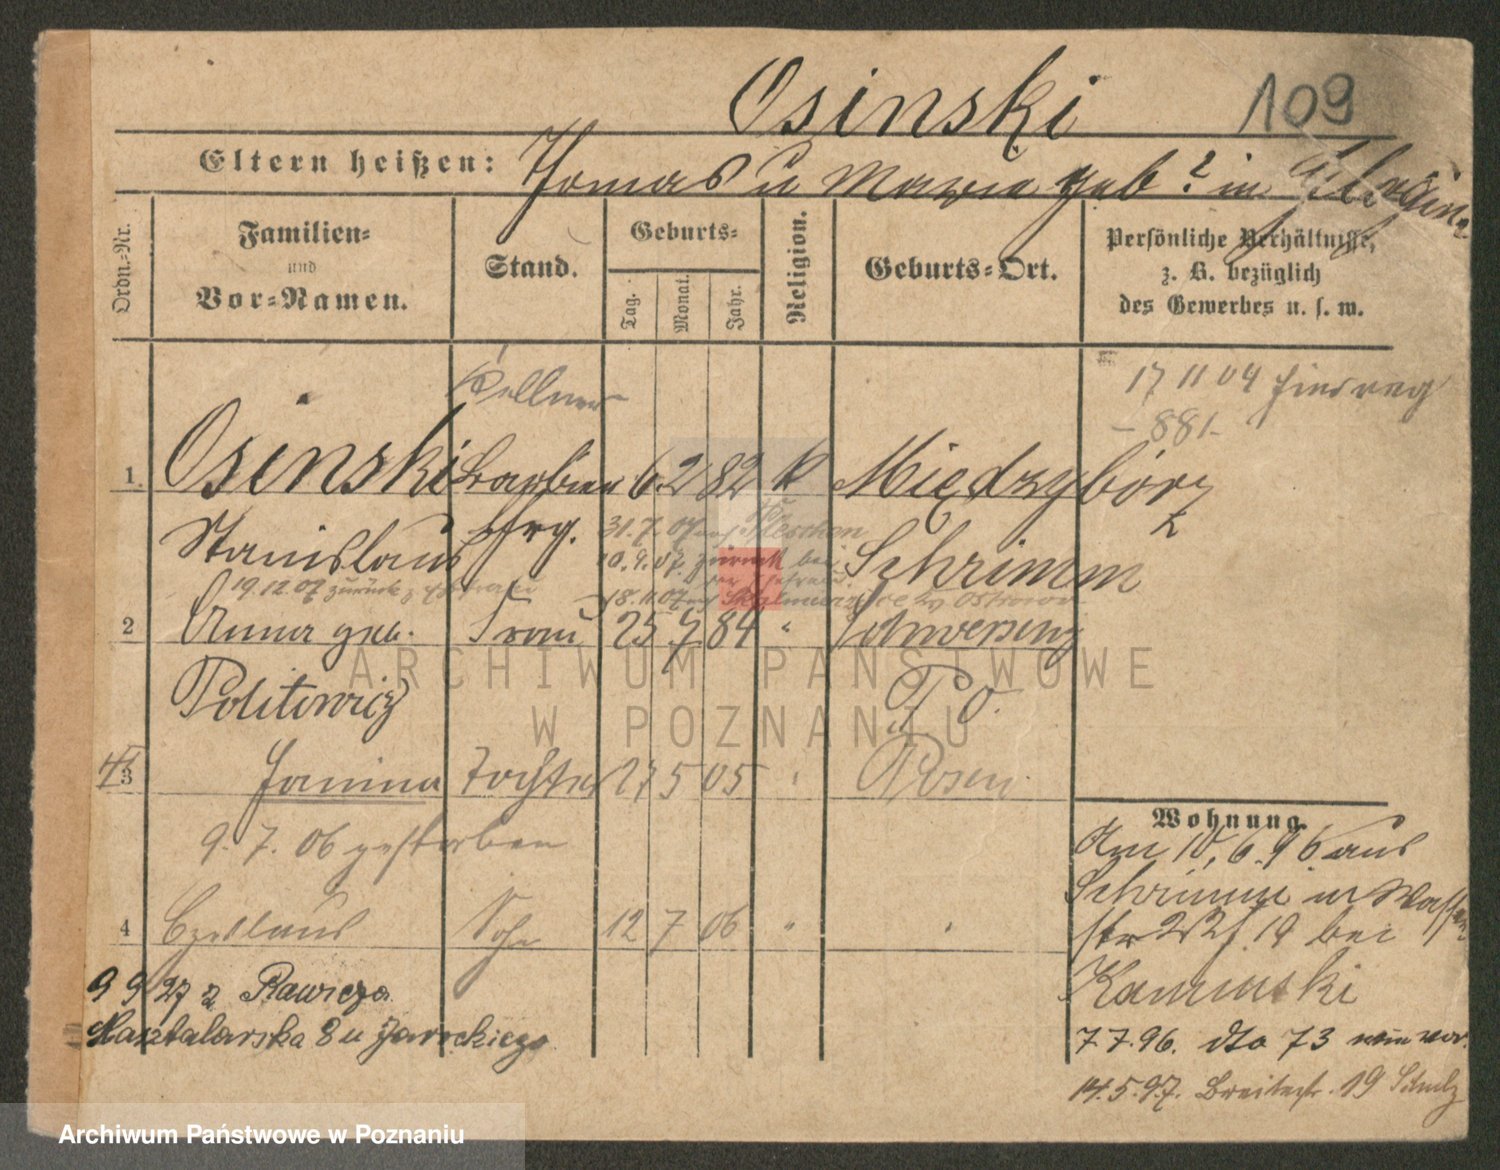 Osinski 109
Eltern heißen: Thomas u Maria geb. ? in
Ordn.-Nr.
Familien-
und
Vor-Namen.
Stand.
Geburts-
Tag. Monat. Jahr.
Religion.
Geburts-Ort.
Persönliche Verhältnisse,
z. B. bezüglich
des Gewerbes u. s. w.
Kellner
17 11 04
-881-
1. Osinski Barbier 6. 2 82 k Międzybórz
Stanislaus 31.7.07 Pleschen Schrimm
10.9.07. zurück bei
19.12.07 zurück 18.11.07 Ostrowo
2 Anna geb. Frau 25 7 84 " Schwersenz
Politowicz P O.
3 Janina Tochter 27 5 05 " Posen
9. 7. 06 gestorben
4 Czeslaus Sohn 12 7 06 " "
9 9 27 z Rawicza
Masztalarska 8 u Jarockiego
Wohnung.
Am 10. 6. 96 aus
Schrimm in Wasser
str 2 19 bei
Kaminski
7 7. 96. dto 73
14. 5. 97. Breitestr. 19 Schulz
ARCHIWUM PAŃSTWOWE
W POZNANIU
Archiwum Państwowe w Poznaniu